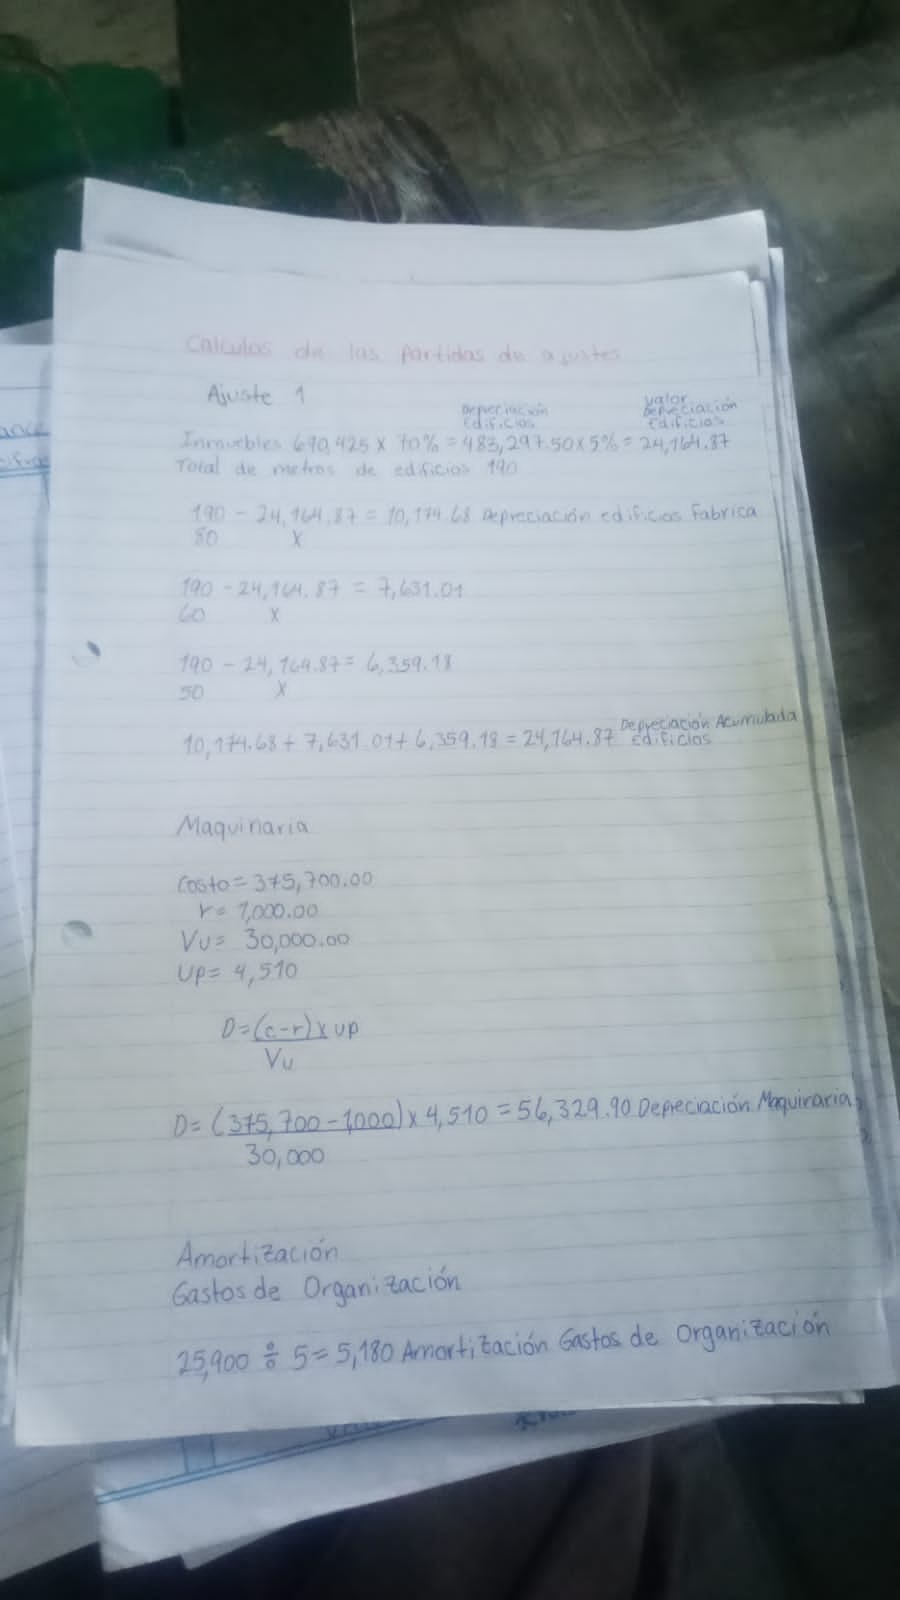 Calculos de las Partidas de ajustes
Ajuste 1
Depreciación Edificios
valor Depreciación Edificios
Inmuebles 690,425 x 70% = 483,297.50 x 5% = 24,164.87
Total de metros de edificios 190
190 - 24,164.87 = 10,174.68 Depreciación edificios Fabrica
80 x
190 - 24,164.87 = 7,631.01
60 x
190 - 24,164.87 = 6,359.18
50 x
10,174.68 + 7,631.01 + 6,359.18 = 24,164.87 Depreciación Acumulada Edificios
Maquinaria
Costo = 375,700.00
r = 1,000.00
Vu = 30,000.00
Up = 4,510
D = (c-r) x up
Vu
D = (375,700 - 1,000) x 4,510 = 56,329.90 Depreciación Maquinaria
30,000
Amortización
Gastos de Organización
25,900 ÷ 5 = 5,180 Amortización Gastos de Organización